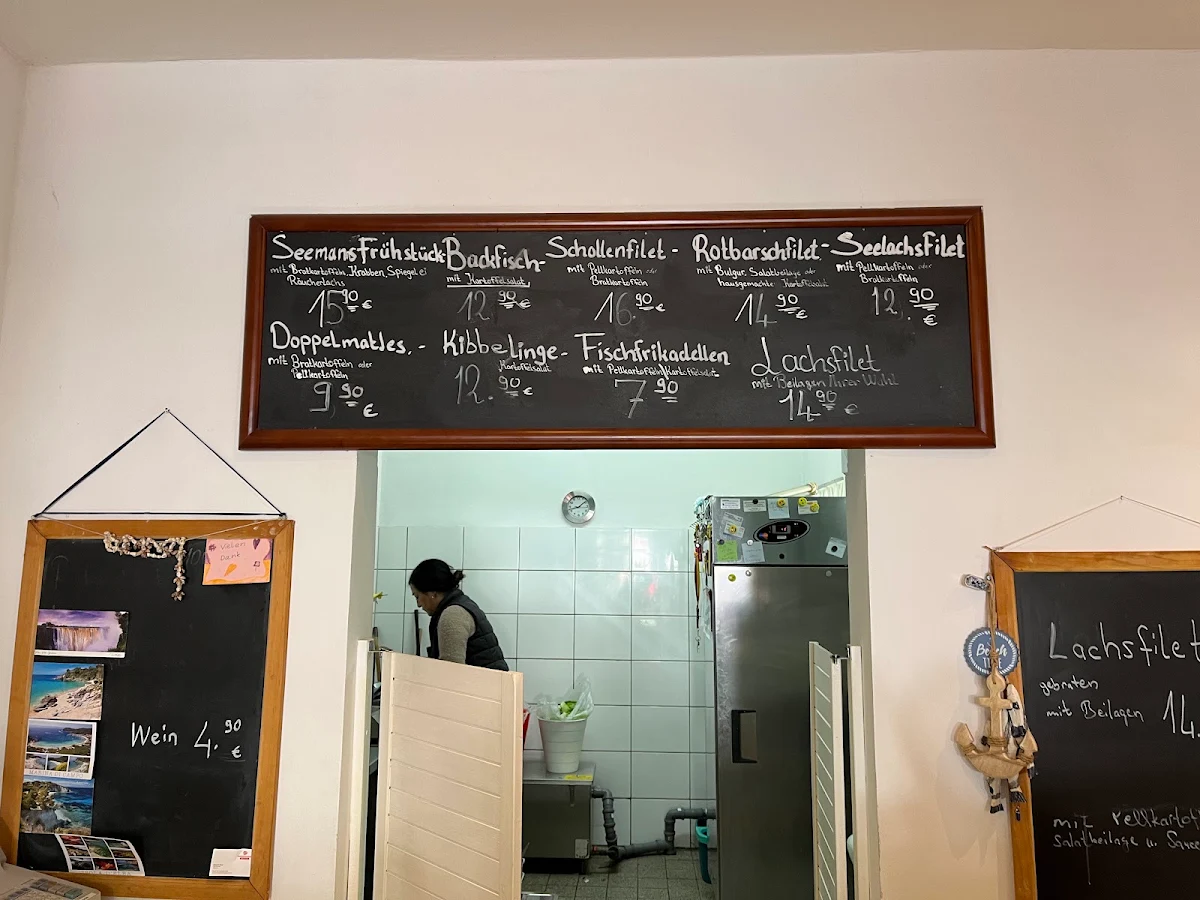 Seemansfrühstück
mit Bratkartoffeln, Krabben, Spiegelei
Räucherlachs
15.90 €
Backfisch-
mit Kartoffelsalat
12.90 €
Schollenfilet -
mit Pellkartoffeln oder
Bratkartoffeln
16.90 €
Rotbarschfilet -
mit Bulgur, Salatbeilage oder
hausgemachte Kartoffelsalat
14.90 €
Seelachsfilet
mit Pellkartoffeln oder
Bratkartoffeln
12.90 €
Doppelmatjes. -
mit Bratkartoffeln oder
Pellkartoffeln
9.90 €
Kibbelinge -
Kartoffelsalat
12.90 €
Fischfrikadellen
mit Pellkartoffeln/Kartoffelsalat
7.90
Lachsfilet
mit Beilagen Ihrer Wahl
14.90 €
Vielen
Dank
MARINA DI CAMPO
Wein 4.90 €
Lachsfilet
gebraten
mit Beilagen 14.
mit Pellkartof
salatbeilage u. Sauce